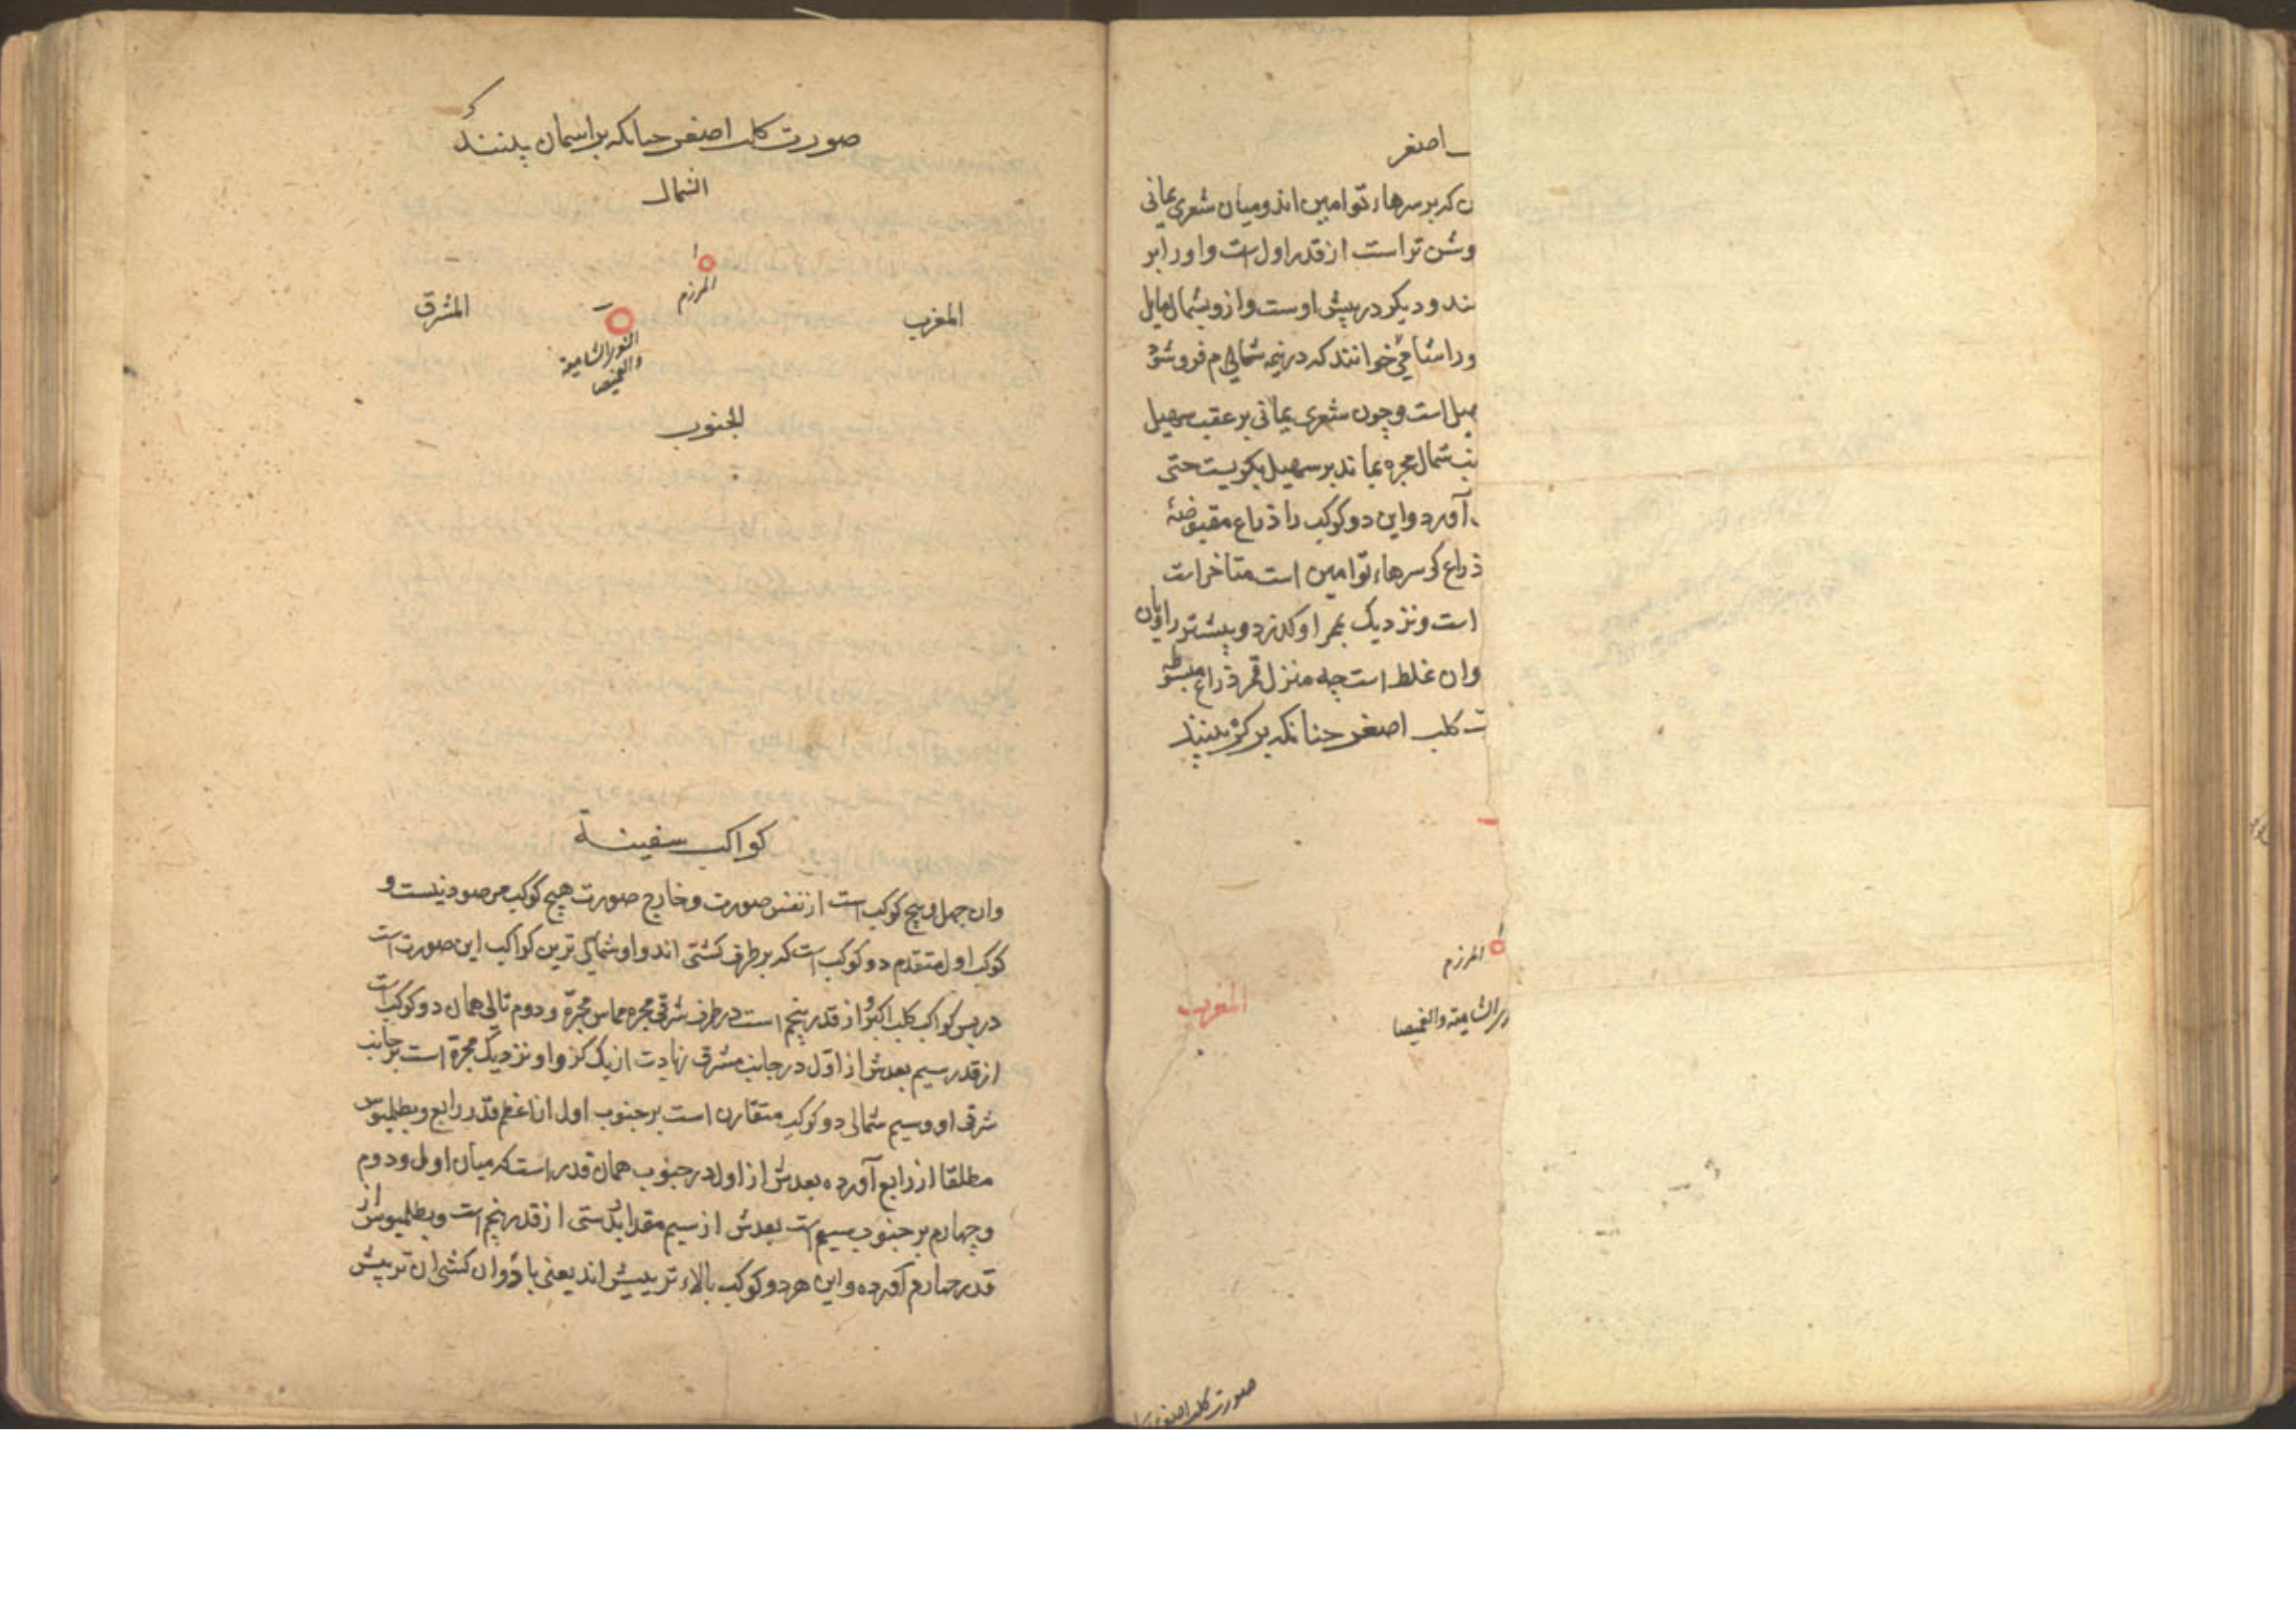 اصغر
ن که بر سرهاء توامین اند و میان شعری یمانی
وشن تر است از قدر اول است و او را بر
ند و دیکر در پیش اوست و ازو بشمال مایل
ورا شامی خوانند که در نیمه شمالی م فرو شود
هیل است و چون شعری یمانی بر عقب سهیل
نب شمال مجره بماند بر سهیل بکریست حتی
آورد و این دو کوکب را ذراع مقبوضه
ذراع کی سرهاء توامین است متاخر است
است و نزدیک بمجر او کذرد و بیشتر راویان
وان غلط است چه منزل قمر ذراع مبسوطه
ت کلب اصغر جنانکه بر کره بینند
المرزم
المغرب
الشامیة والغمیصا
صورت کلب اصغر
صورت کلب اصغر جنانکه بر اسمان بینند
الشمال
ا
المرزم
المغرب
المشرق
الشامیة
والغمیصا
الجنوب
کواکب سفینة
وان چهل و پنج کوکب است از نفس صورت و خارج صورت هیچ کوکب مرصود نیست و
کوکب اول متقدم دو کوکب است که بر طرف کشتی اند و او شمالی ترین کواکب این صورت است
در پس کواکب کلب اکبر و از قدر پنجم است در طرف شرقی مجره مماس مجرّه و دوم تالی همان دو کوکب است
از قدر سیم بعدش از اوّل در جانب مشرق زیادت از یک کز و او نزدیک مجرّة است بر جانب
شرقی او و سیم شمالی دو کوکب متقارن است بر جنوب اول از اعظم قدر رابع و بطلمیوس
مطلقا از رابع آورده بعدش از اول در جنوب همان قدر است که میان اول و دوم
و چهارم بر جنوب سیم است بعدش از سیم مقدار بدستی از قدر پنجم است و بطلمیوش از
قدر چهارم آورده و این هر دو کوکب بالاء تر بیش اند یعنی باذوان کشتی ان تر پیش